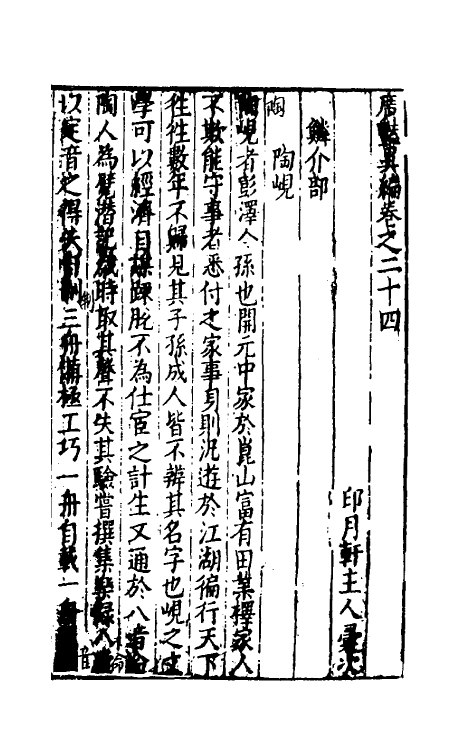 廣豔異編卷之二十四
印月軒主人彙次
鱗介部
陶峴
陶峴者彭澤令孫也開元中家於崑山富有田業擇家人
不欺能守事者悉付之家事身則汎遊於江湖徧行天下
往往數年不歸見其子孫成人皆不辨其名字也峴之文
學可以經濟自謂疎脫不為仕宦之計生又通於八音
陶人為甓潛記歲時取其聲不失其驗嘗撰集樂錄八音
以定音之得失制三舟備極工巧一舟自載一舟